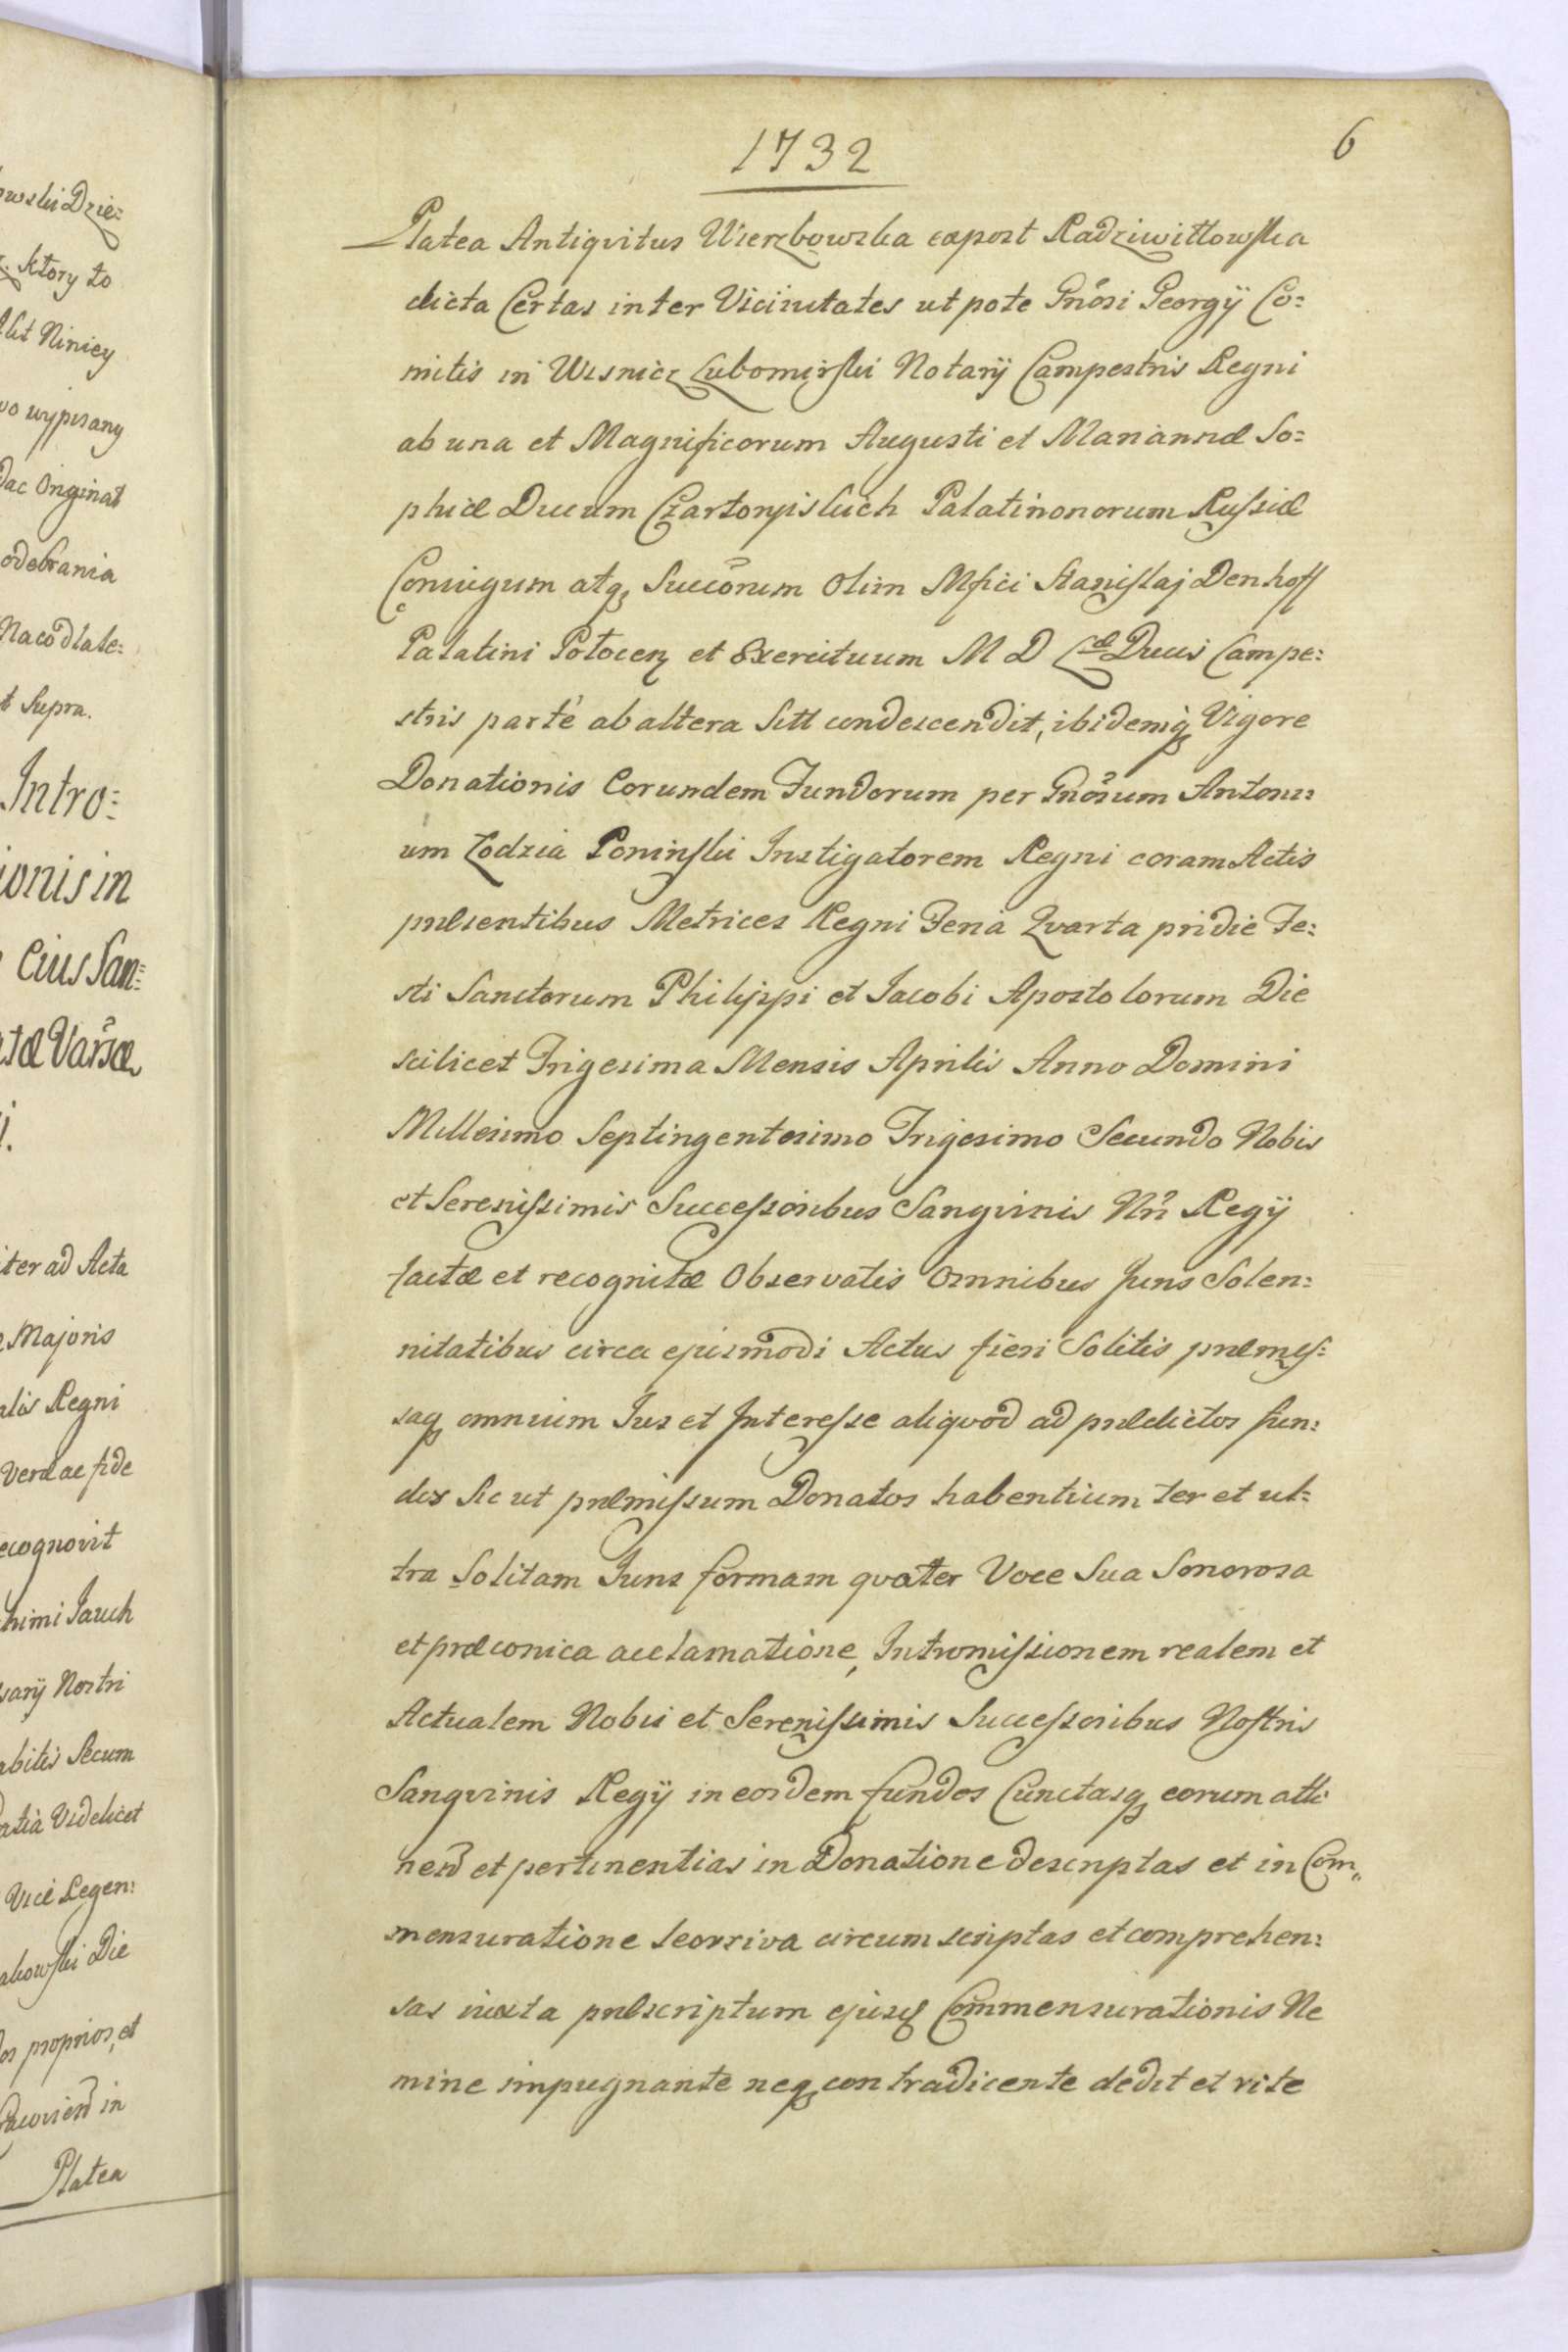 owski Dzie=
ktory to
Niniey
wypisany
Originał
odebrania
t Supra.
Intro=
ionis in
Eius San=
tæ Varsæ
iter ad Acta
Majoris
alis Regni
Veræ ac fide
ecognovit
himi Jauch
sarij Nostri
abitis Secum
Videlicet
Vice Regen:
akowski Die
os proprios, et
in
Platea
1732
6
Platea Antiqvitus Wierzbowska expost Radziwiłłowska
dicta Certas inter Viciinitates ut pote Gnosi Georgij Co=
mitis in Wisnicz Lubomirski Notarij Campestris Regni
ab una et Magnificorum Augusti et Mariannæ So=
phiæ Ducum Czartoryiskich Palatinonorum Russiæ
Coniugum atq Succorum Olim Mfici Stanislaj Denhoff
Palatini Połocen et Exercituum M D Ducis Campe=
stris parte ab altera Siti condescendit, ibidemq Vigore
Donationis Eorundem Fundorum per Gnosum Antoni=
um Łodzia Poninski Instigatorem Regni coram Actis
præsentibus Metrices Regni Feria Qvarta pridie Fe=
sti Sanctorum Philippi et Jacobi Apostolorum Die
scilicet Trigesima Mensis Aprilis Anno Domini
Millesimo Septingentesimo Trigesimo Secundo Nobis
et Serenissimis Successoribus Sangvinis Nri Regij
factæ et recognitæ Observatis Omnibus Juris Solen=
nitatibus circa ejusmodi Actus fieri Solitis præmis=
saq omnium Jus et Interesse aliqvod ad prædictos fun=
dos Sic ut præmissum Donatos habentium ter et ul=
tra Solitam Juris formam qvater Voce Sua Sonorosa
et præconica acclamatione, Intromissionem realem et
Actualem Nobis et Serenissimis Successoribus Nostris
Sangvinis Regij in eosdem fundos Cunctasq eorum atti
nen et pertinentias in Donatione descriptas et in Com„
mensuratione seorsiva circumscriptas et comprehen=
sas iuxta præscriptum ejusq Commensurationis Ne
mine impugnante neq contradicente dedit et rite